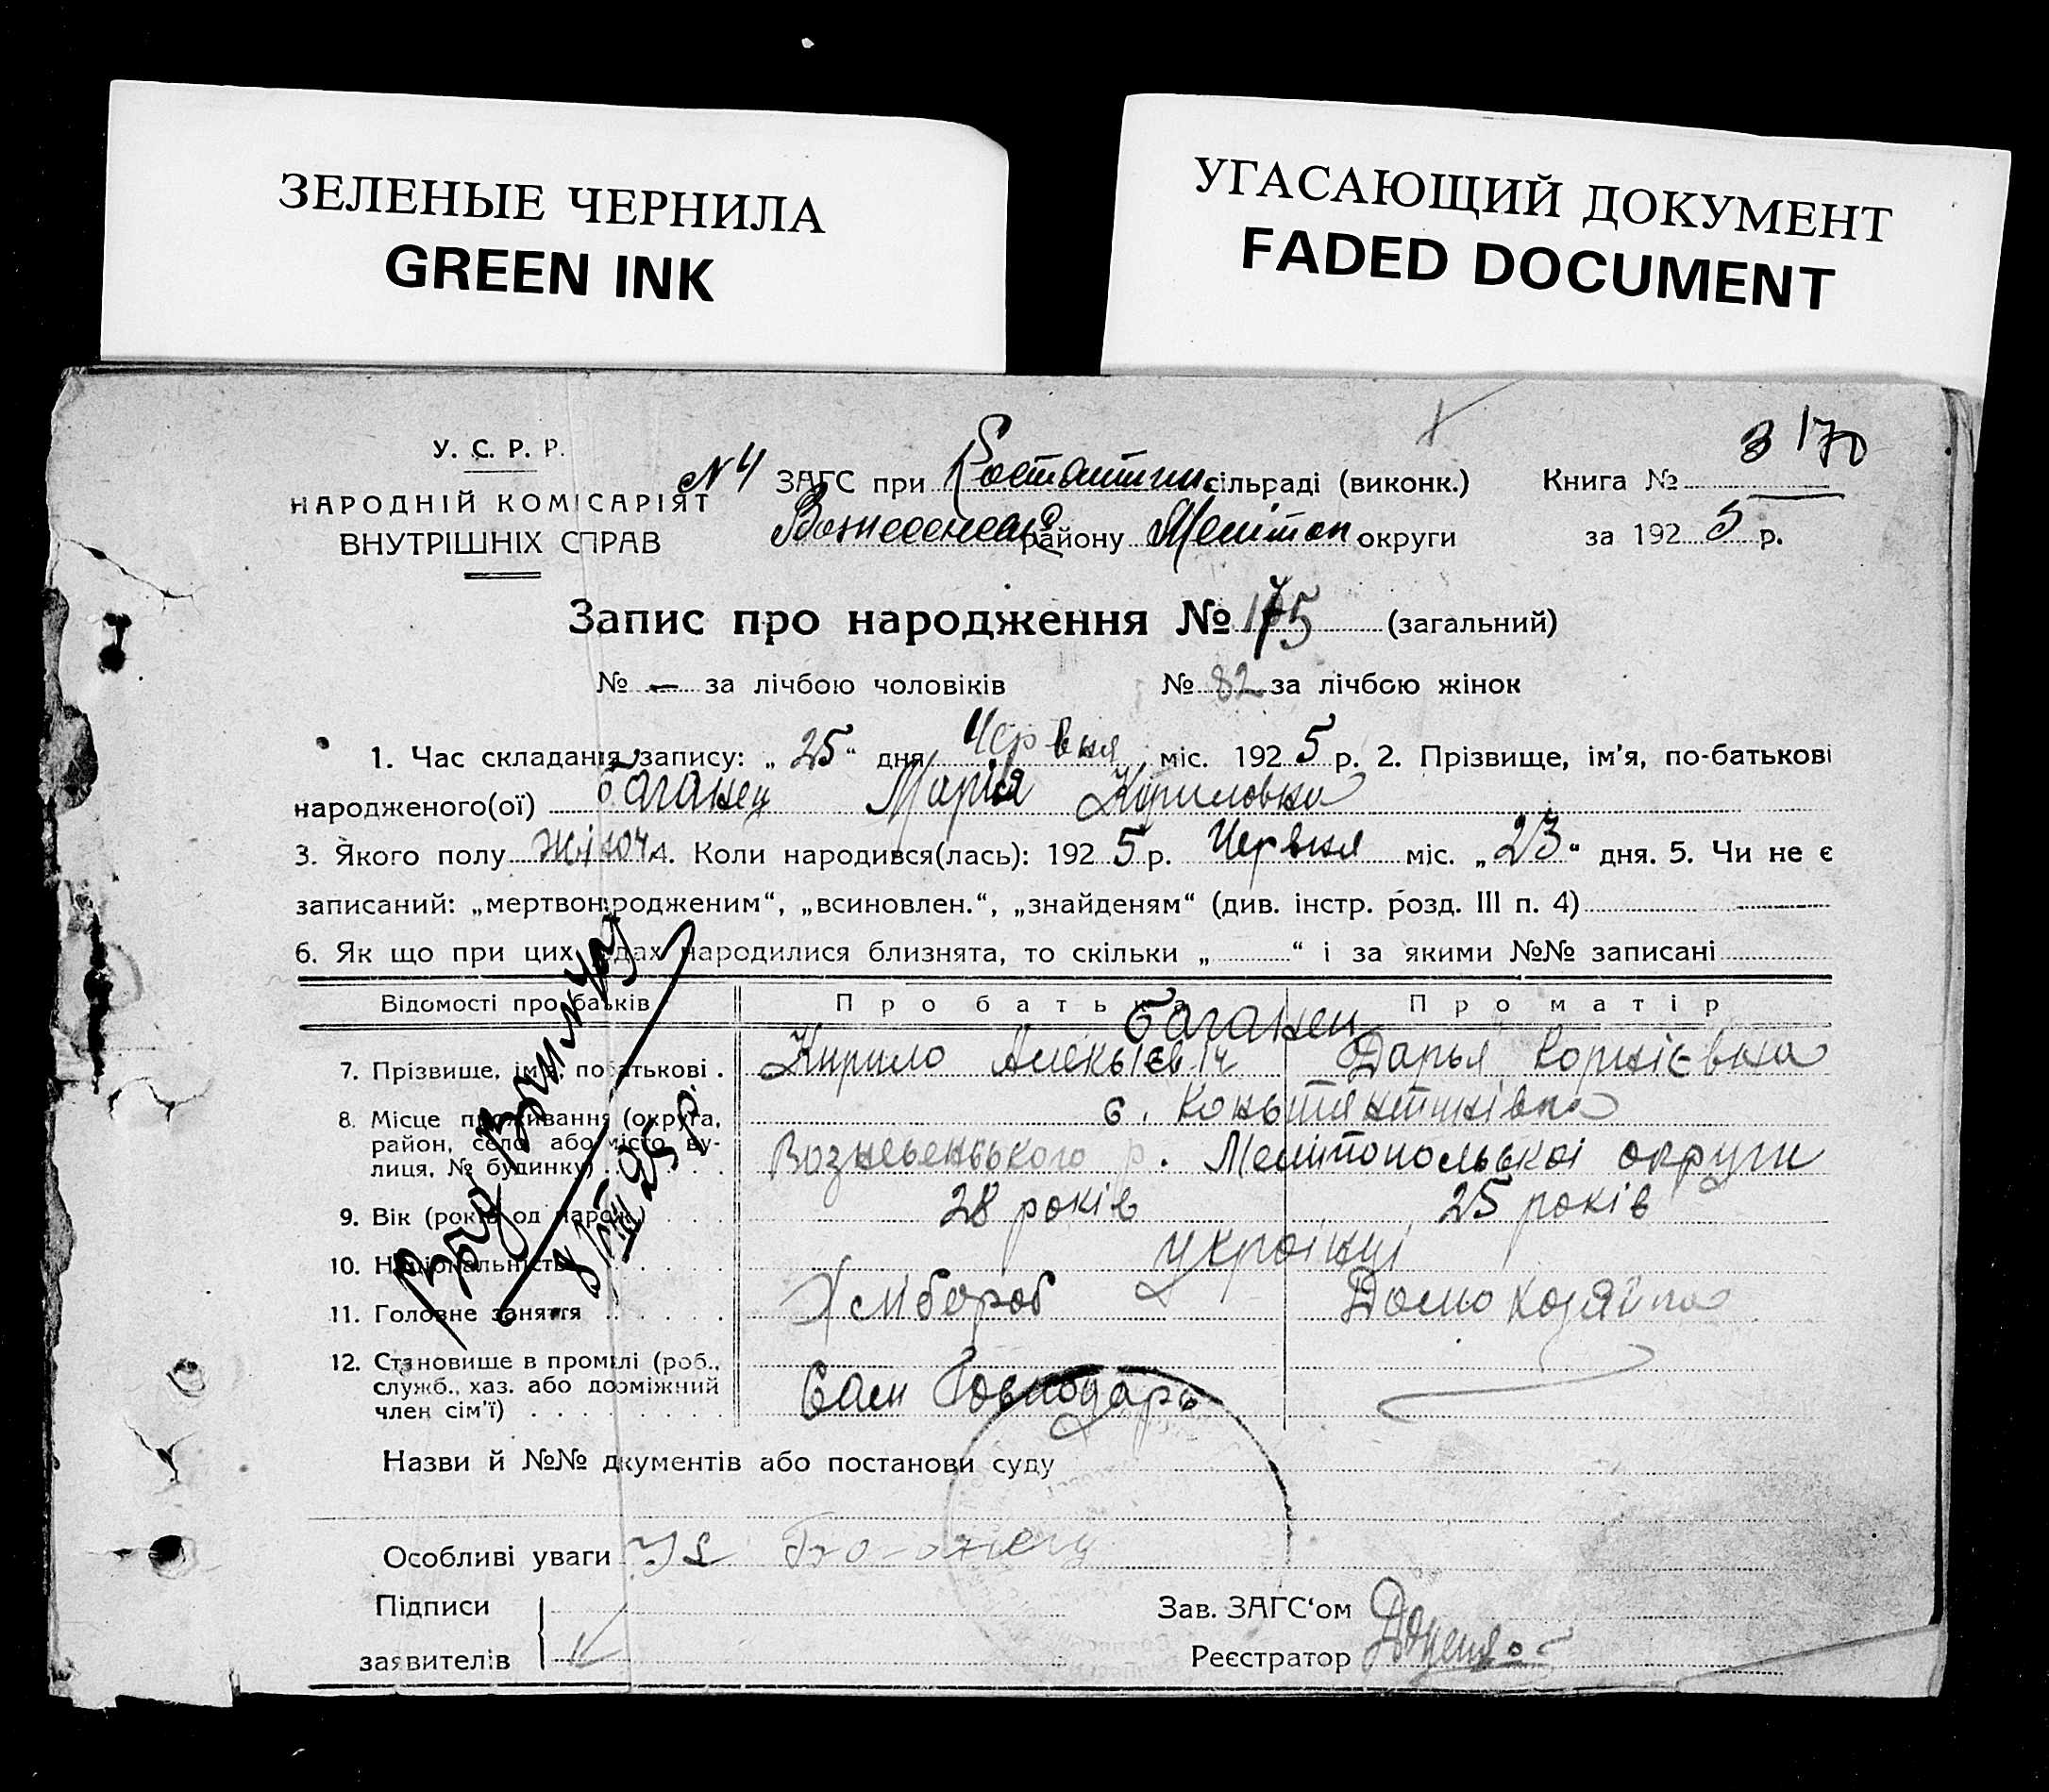 ЗЕЛЕНЫЕ ЧЕРНИЛА
GREEN INK
УГАСАЮЩИЙ ДОКУМЕНТ
FADED DOCUMENT
У. С. Р. Р.
НАРОДНІЙ КОМІСАРІЯТ
ВНУТРІШНІХ СПРАВ
N 4 ЗАГС при Костантин. сільраді (виконк.)
Вознесенськ району Мелітоп. округи
Книга № 3 170
за 1925 р.
Запис про народження № 175 (загальний)
№ — за лічбою чоловіків № 82 за лічбою жінок
1. Час складання запису: „25“ дня Червня міс. 1925 р. 2. Прізвище, ім'я, по-батькові
народженого(ої) Баганец Марія Кириловна
3. Якого полу Жіноч. 4. Коли народився(лась): 1925 р. Червня міс. „23“ дня. 5. Чи не є
записаний: „мертвонародженим“, „всиновлен.“, „знайденям“ (див. інстр. розд. III п. 4)
6. Як що при цих родах народилися близнята, то скільки „ “ і за якими №№ записані
Відомості про батьків Про батька Про матір
Баганец
7. Прізвище, ім'я, по батькові . Кирило Алексієвіч Дарья Корнієвна
8. Місце проживання (округа, с. Констянтинівка
район, село або місто, ву-
лиця, № будинку) Вознесенського р. Мелітопольської округи
9. Вік (років од народж.) 28 років 25 років
10. Національність українці
11. Головне заняття Хлібороб Домохозяйка
12. Становище в промислі (роб.,
служб., хаз. або допоміжний Сам Господарь
член сім'ї)
Назви й №№ документів або постанови суду
Особливі уваги
Підписи
заявителів
Зав. ЗАГС'ом
Реєстратор